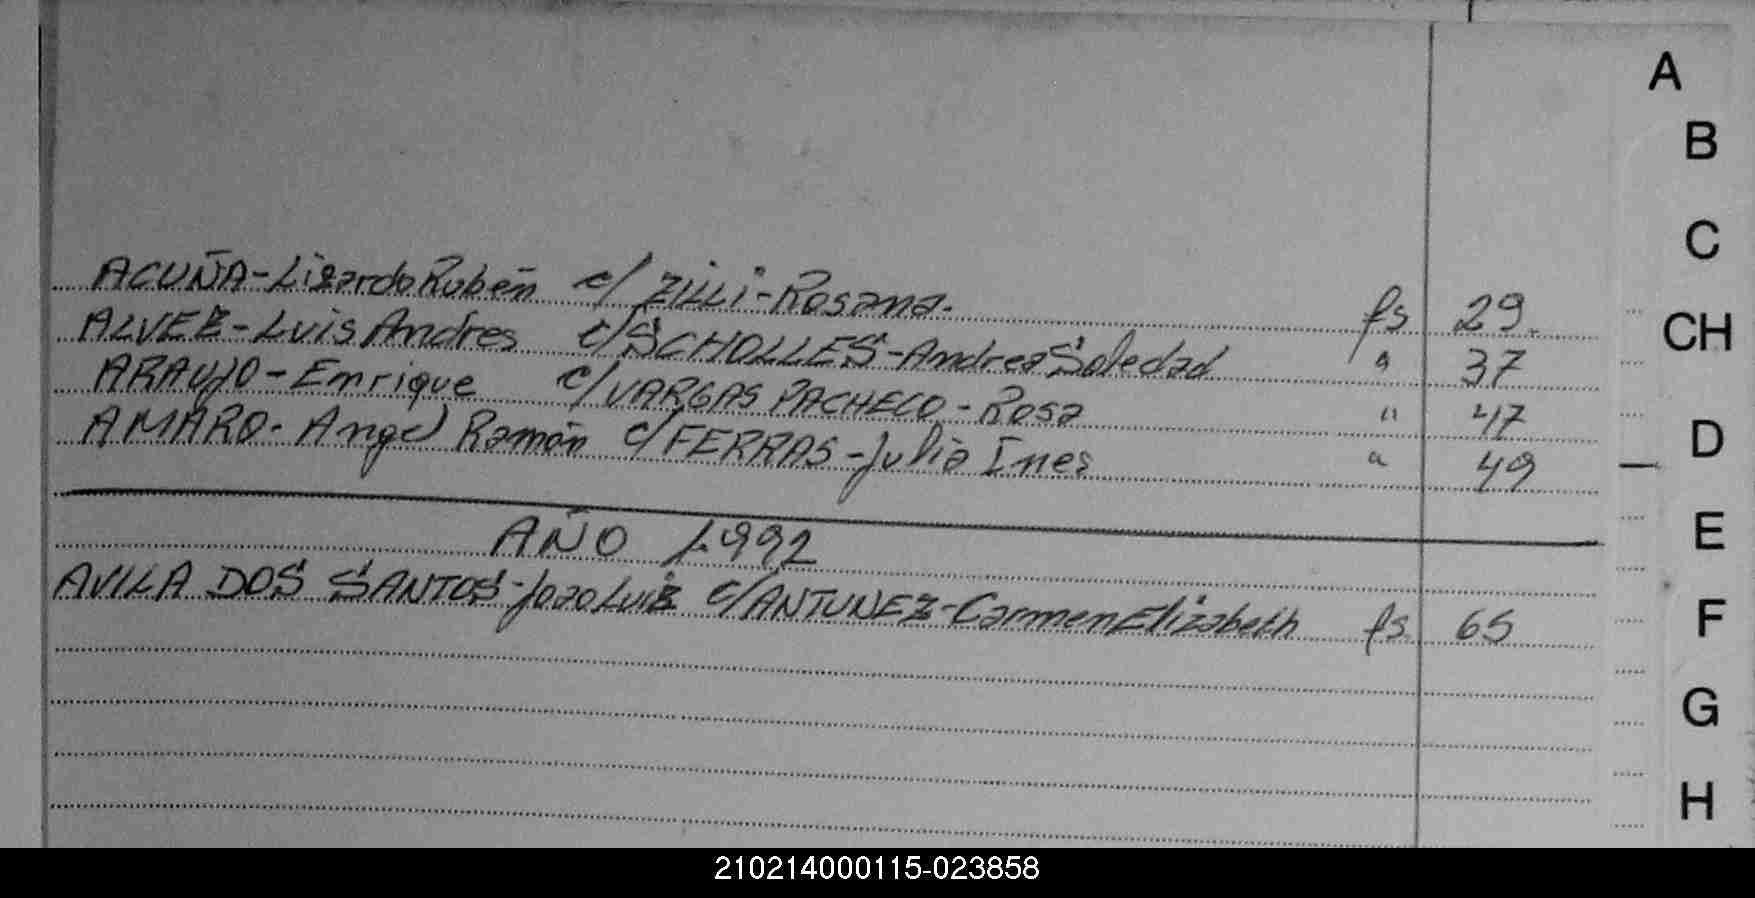 ACUÑA-Lizardo Rubén c/ ZILLI-Rosana. fs 29.
ALVEZ-Luis Andres c/SCHOLLES-Andrea Soledad " 37
ARAUJO-Enrique c/VARGAS PACHECO-Rosa " 47
AMARO-Angel Ramón c/FERRAS-Julia Ines " 49
AÑO 1.992
AVILA DOS SANTOS-Joao Luiz c/ANTUNEZ-Carmen Elizabeth fs. 65
A
B
C
CH
D
E
F
G
H
210214000115-023858